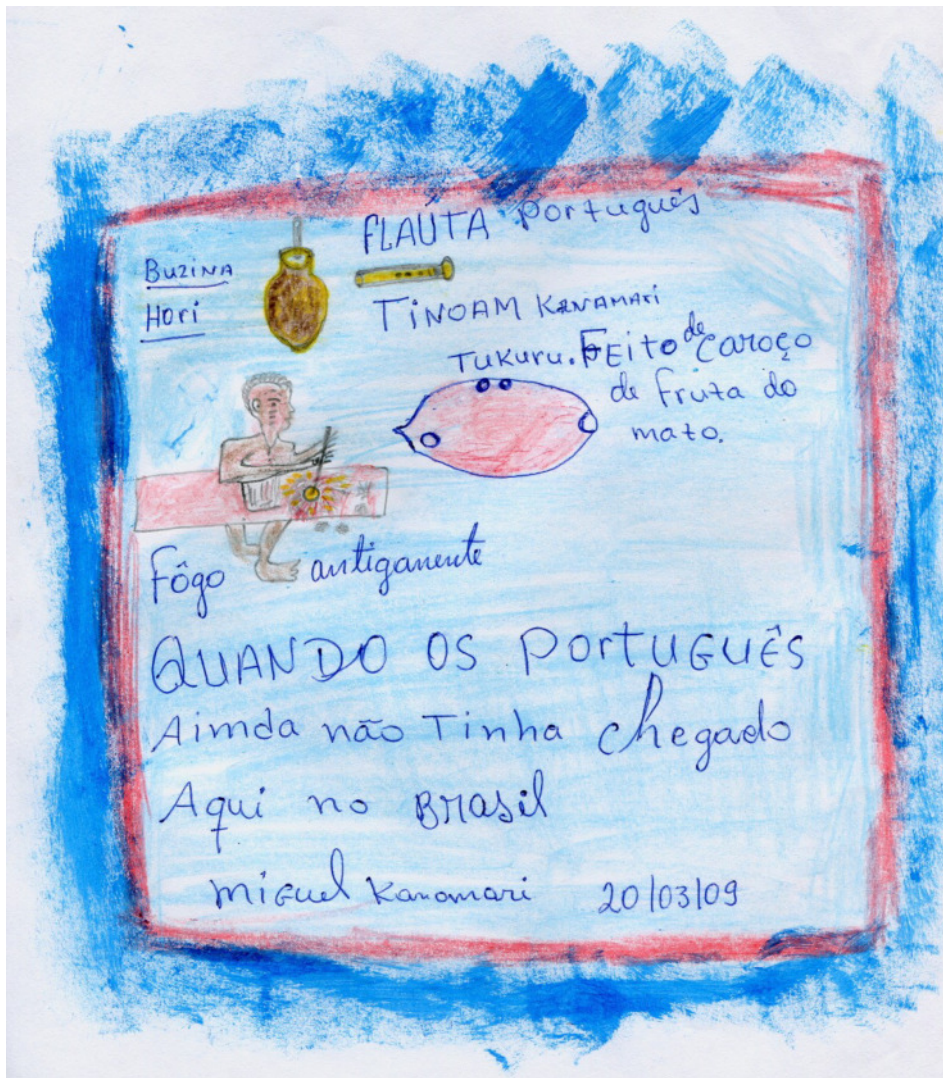 FLAÚTA Português
BUZINA
Hori
TiNOAM KANAMARi
TUKURU. FEito de caroço
de Fruta do
mato.
Fôgo antiganente
QUANDO OS PORTUGUÊS
Aimda não Tinha chegado
Aqui no BRasil
miGuel Kanamari 20/03/09